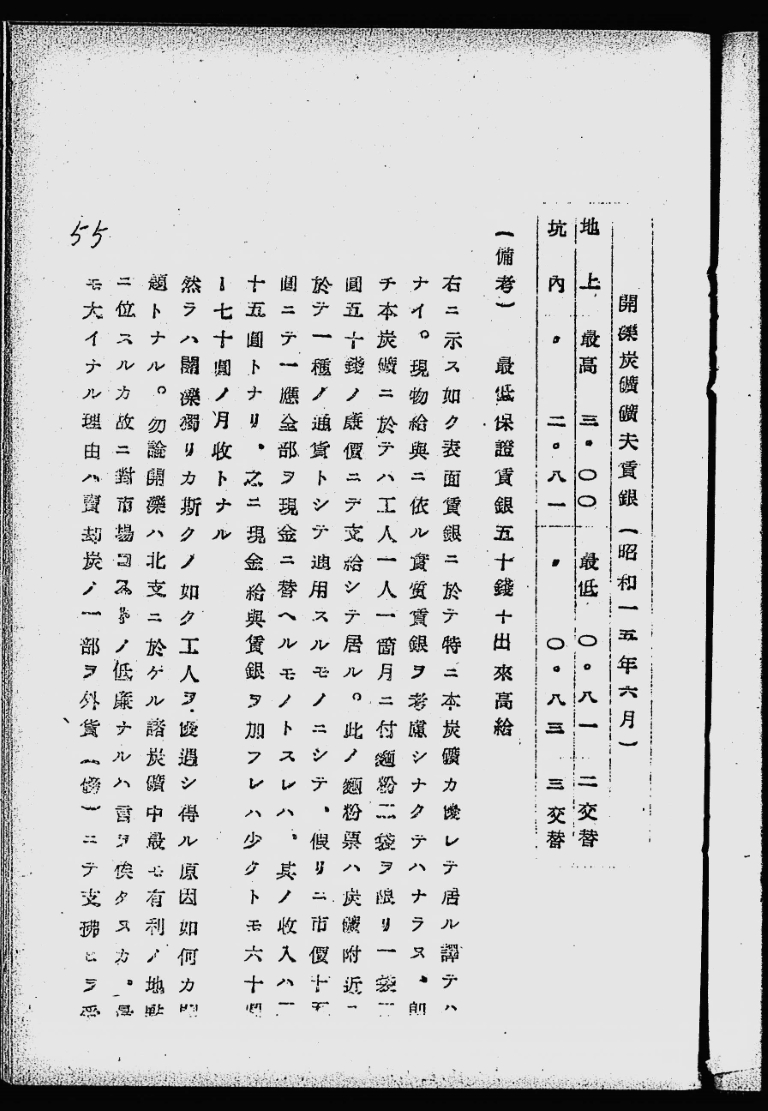 開灤炭礦礦夫賃銀(昭和一五年六月)
地上 最高 三・〇〇 最低 〇・八一 二交替
坑內 〃 二・八一 〃 〇・八三 三交替
(備考) 最低保證賃銀五十錢+出來高給
右ニ示ス如ク表面賃銀ニ於テ特ニ本炭礦カ優レテ居ル譯テハ
ナイ。現物給與ニ依ル實質賃銀ヲ考慮シナクテハナラヌ、卽
チ本炭礦ニ於テハ工人一人一箇月ニ付麵粉二袋ヲ限リ一袋
圓五十錢ノ廉價ニテ支給シテ居ル。此ノ麵粉票ハ炭礦附近ニ
於テ一種ノ通貨トシテ通用スルモノニシテ、假リニ市價十五
圓ニテ一應全部ヲ現金ニ替ヘルモノトスレハ、其ノ收入ハ
十五圓トナリ、之ニ現金給與賃銀ヲ加フレハ少クトモ六十圓
ー七十圓ノ月收トナル
然ラハ開灤獨リカ斯クノ如ク工人ヲ優遇シ得ル原因如何カ問
題トナル。勿論開灤ハ北支ニ於ケル諸炭礦中最モ有利ノ地點
ニ位スルカ故ニ對市場コストノ低廉ナルハ言ヲ俟タヌカ、最
モ大イナル理由ハ賣却炭ノ一部ヲ外貨(磅)ニテ支拂ヒヲ受
55